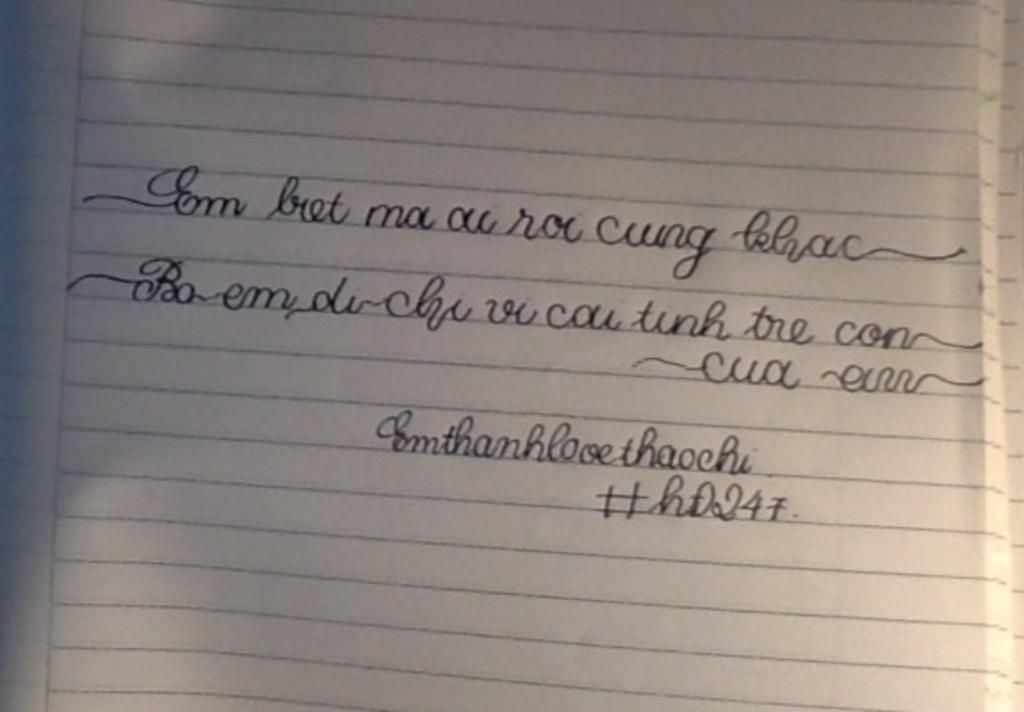 Em biet ma ai roi cung khac
Bo em di chi vi cai tinh tre con
cua em
Emthanhlovethaochi
#hD247.